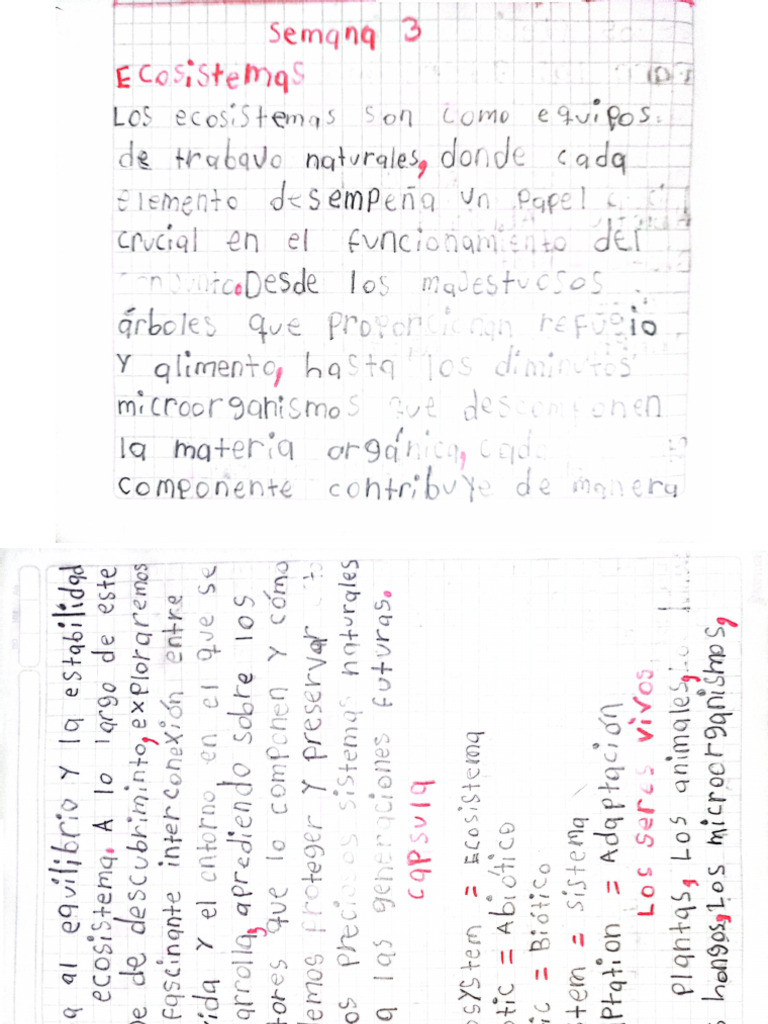 Semana 3
Ecosistemas
Los ecosistemas son como equipos
de trabavo naturales, donde cada
elemento desempeña un papel
crucial en el funcionamiento del
Desde los majestuosos
árboles que proporcionan refugio
y alimento, hasta los diminutos
microorganismos que descomponen
la materia orgánica, cada
componente contribuye de manera
a al equilibrio y la estabilidad
ecosistema. A lo largo de este
e de descubriminto, exploraremos
fascinante interconexión entre
ida y el entorno en el que se
arrolla, aprediendo sobre los
tores que lo componen y cómo
demos proteger y preservar
os preciosos sistemas naturales
a las generaciones futuras.
capsula
osystem = Ecosistema
otic = Abiótico
ic = Biótico
stem = sistema
aptation = Adaptación
Los seres vivos
plantas, Los animales,
hongos, Los microorganismos,